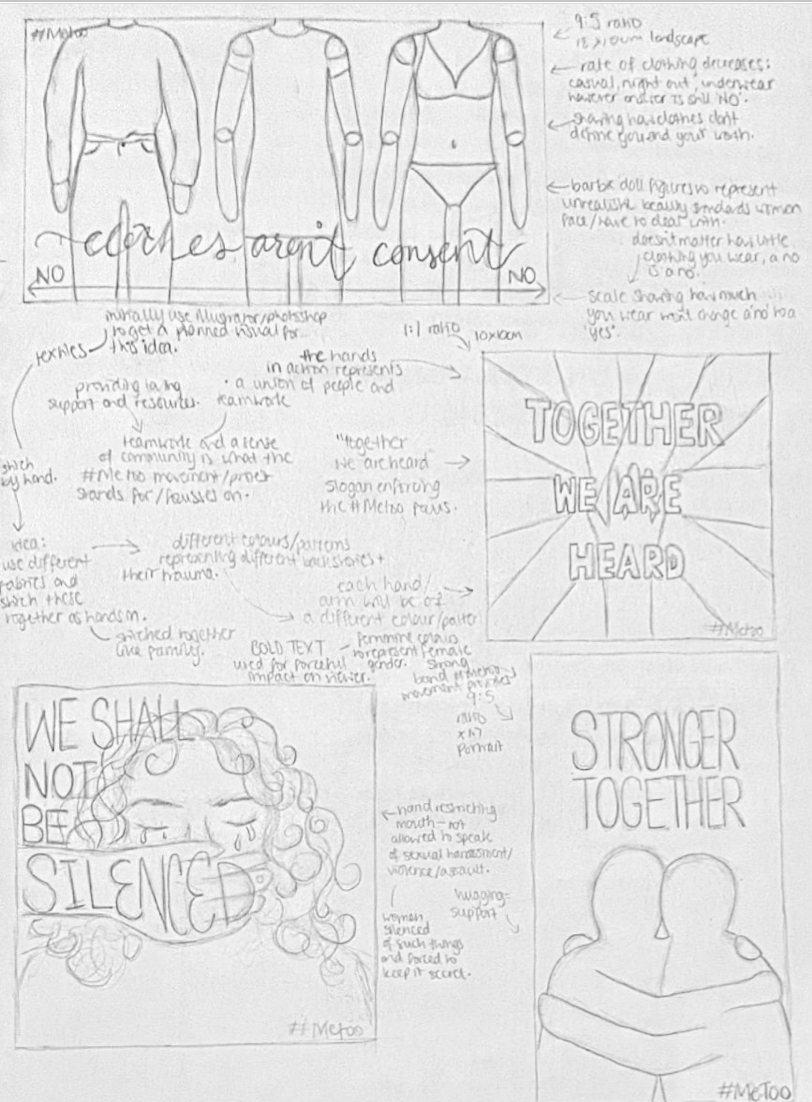 #Metoo
clothes aren't consent
NO
NO
9:5 ratio
18 x 10cm landscape
rate of clothing decreases:
casual, night out, underwear
however answer is still 'NO'.
sharing how clothes don't
define you and your worth.
barbie doll figures to represent
unrealistic beauty standards women
face/have to deal with.
doesn't matter how little
clothing you wear, a no
is a no.
scale sharing how much
you wear won't change a 'no' to a
'yes'.
initially use illustrator/photoshop
to get a planned visual for
this idea.
textiles
1:1 ratio
10x10cm
the hands
in action represents
a union of people and
teamwork
providing
support and resources.
teamwork and a sense
of community is what the
#Metoo movement/project
stands for/focusses on.
"together
we are heard"
slogan enforcing
the #Metoo focus.
TOGETHER
WE ARE
HEARD
#Metoo
stitch
by hand.
idea:
use different
fabrics and
stitch these
together as hands on.
stitched together
like family.
different colours/patterns
representing different backstories +
their trauma.
each hand/
arm will be of
a different colour/patter
BOLD TEXT
used for forceful
impact on viewer.
feminine colours
to represent female
gender.
strong
bond
movement provides
9:5
ratio
portrait
WE SHALL
NOT
BE
SILENCED
#Metoo
hand restricting
mouth - not
allowed to speak
of sexual harassment/
violence/assault.
women
silenced
of such things
and forced to
keep it secret.
hugging =
support
STRONGER
TOGETHER
#MeToo